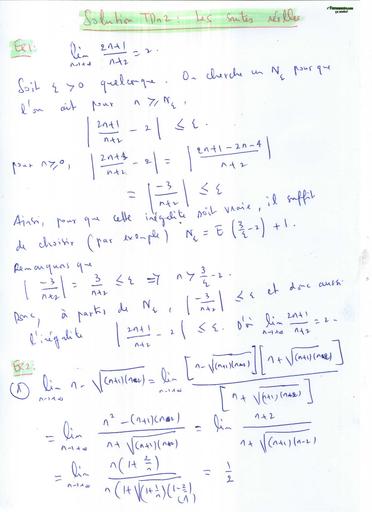 Solution TD n°2 : Les suites réelles
Ex1: lim n→+∞ 2n+1/n+2 = 2.
Soit ε > 0 quelconque. On cherche un Nε pour que
l'on ait pour n ≥ Nε,
| 2n+1/n+2 - 2 | ≤ ε.
pour n≥0, | 2n+1/n+2 - 2 | = | 2n+1-2n-4/n+2 |
= | -3/n+2 | ≤ ε
Ainsi, pour que cette inégalité soit vraie, il suffit
de choisir (par exemple) Nε = E(3/ε - 2) + 1.
Remarquons que
| -3/n+2 | = 3/n+2 ≤ ε ⇒ n > 3/ε - 2.
Donc, à partir de Nε, | -3/n+2 | ≤ ε et donc aussi
l'inégalité | 2n+1/n+2 - 2 | ≤ ε. D'où lim n→+∞ 2n+1/n+2 = 2.
Ex2:
(1) lim n→+∞ n - √(n+1)(n+2) = lim n→+∞ [n - √(n+1)(n+2)][n + √(n+1)(n+2)] / [n + √(n+1)(n+2)]
= lim n→+∞ n² - (n+1)(n-2) / n + √(n+1)(n-2) = lim n+2 / n + √(n+1)(n-2)
= lim n→+∞ n(1 + 2/n) / n(1 + √(1+1/n)(1-2/n)) = 1/2
(1)